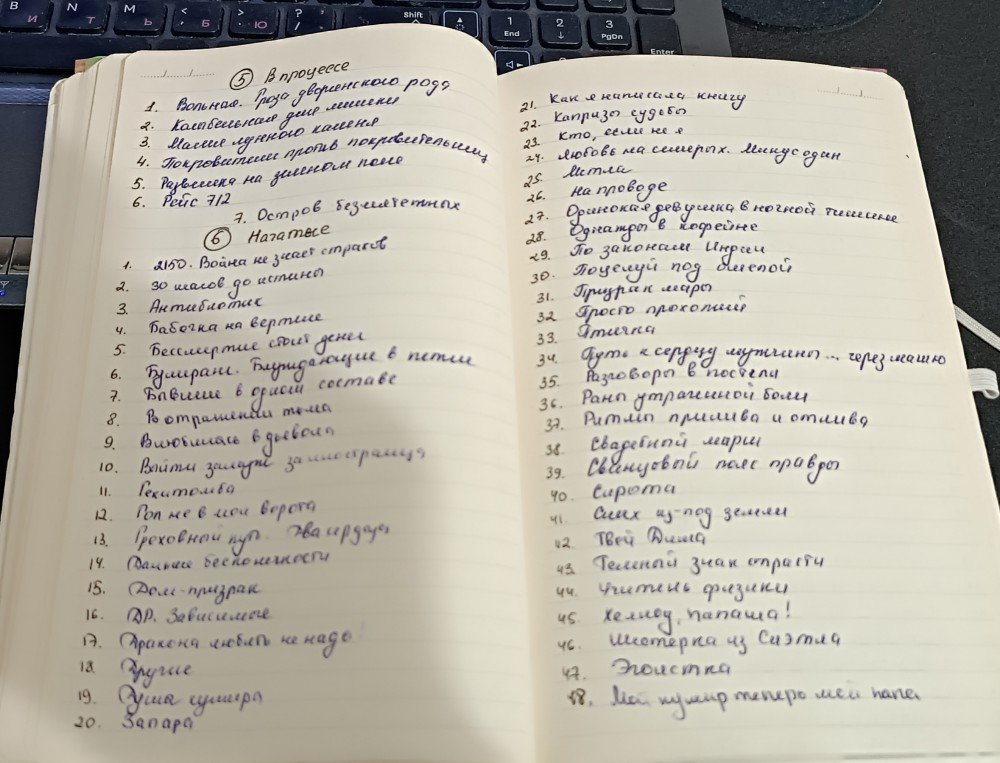 ⑤ В процессе
1. Вольная. Гроза дворянского рода
2. Колыбельная для мишки
3. Магия лунного камня
4. Покровитель против покровительниц
5. Развилка на зелёном поле
6. Рейс 712
7. Остров безмятежных
⑥ Начатые
1. 2150. Война не знает страхов
2. 30 шагов до истины
3. Антиблотик
4. Бабочка на вертиле
5. Бессмертие стоит денег
6. Бумеранг. Блуждающие в петле
7. Бывшие в одном составе
8. В отражении тома
9. Влюбилась в дьявола
10. Выйти замуж за иностранца
11. Гекатомба
12. Гол не в мои ворота
13. Греховный путь. Два сердца
14. Дальше бесконечности
15. Дом-призрак
16. ДР. Зависимые
17. Дракона любить не надо!
18. Другие
19. Душа кумира
20. Запара
21. Как я написала книгу
22. Капризы судьбы
23. Кто, если не я
24. Любовь на семерых. Минус один
25. Метла
26. На проводе
27. Одинокая девушка в ночной тишине
28. Однажды в кофейне
29. По законам Индии
30. Поцелуй под омелой
31. Призрак мары
32. Просто прохожий
33. Птичка
34. Путь к сердцу мужчины... через машю
35. Разговоры в постели
36. Раны утраченной боли
37. Ритмы прилива и отлива
38. Свадебный марш
39. Свинцовый пояс правды
40. Сирота
41. Смех из-под земли
42. Твой Дима
43. Темный знак страсти
44. Учитель физики
45. Хеллоу, папаша!
46. Шестерка из Сиэтла
47. Эгоистка
48. Мой кумир теперь мой папа
Shift
1
End
2
3
PgDn
Enter
В И
N Т
M Ь
< , Б
> . Ю
? /